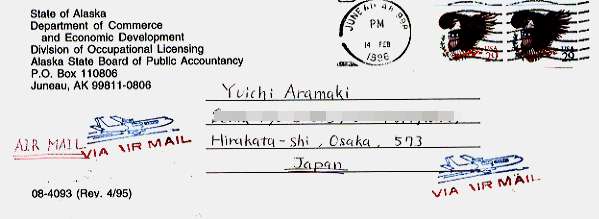 State of Alaska
Department of Commerce
and Economic Development
Division of Occupational Licensing
Alaska State Board of Public Accountancy
P.O. Box 110806
Juneau, AK 99811-0806
JUNEAU
PM
14 FEB
1996
USA
29
USA
29
Yuichi Aramaki
Hirakata-shi, Osaka, 573
Japan
AIR MAIL
VIA AIR MAIL
VIA AIR MAIL
08-4093 (Rev. 4/95)